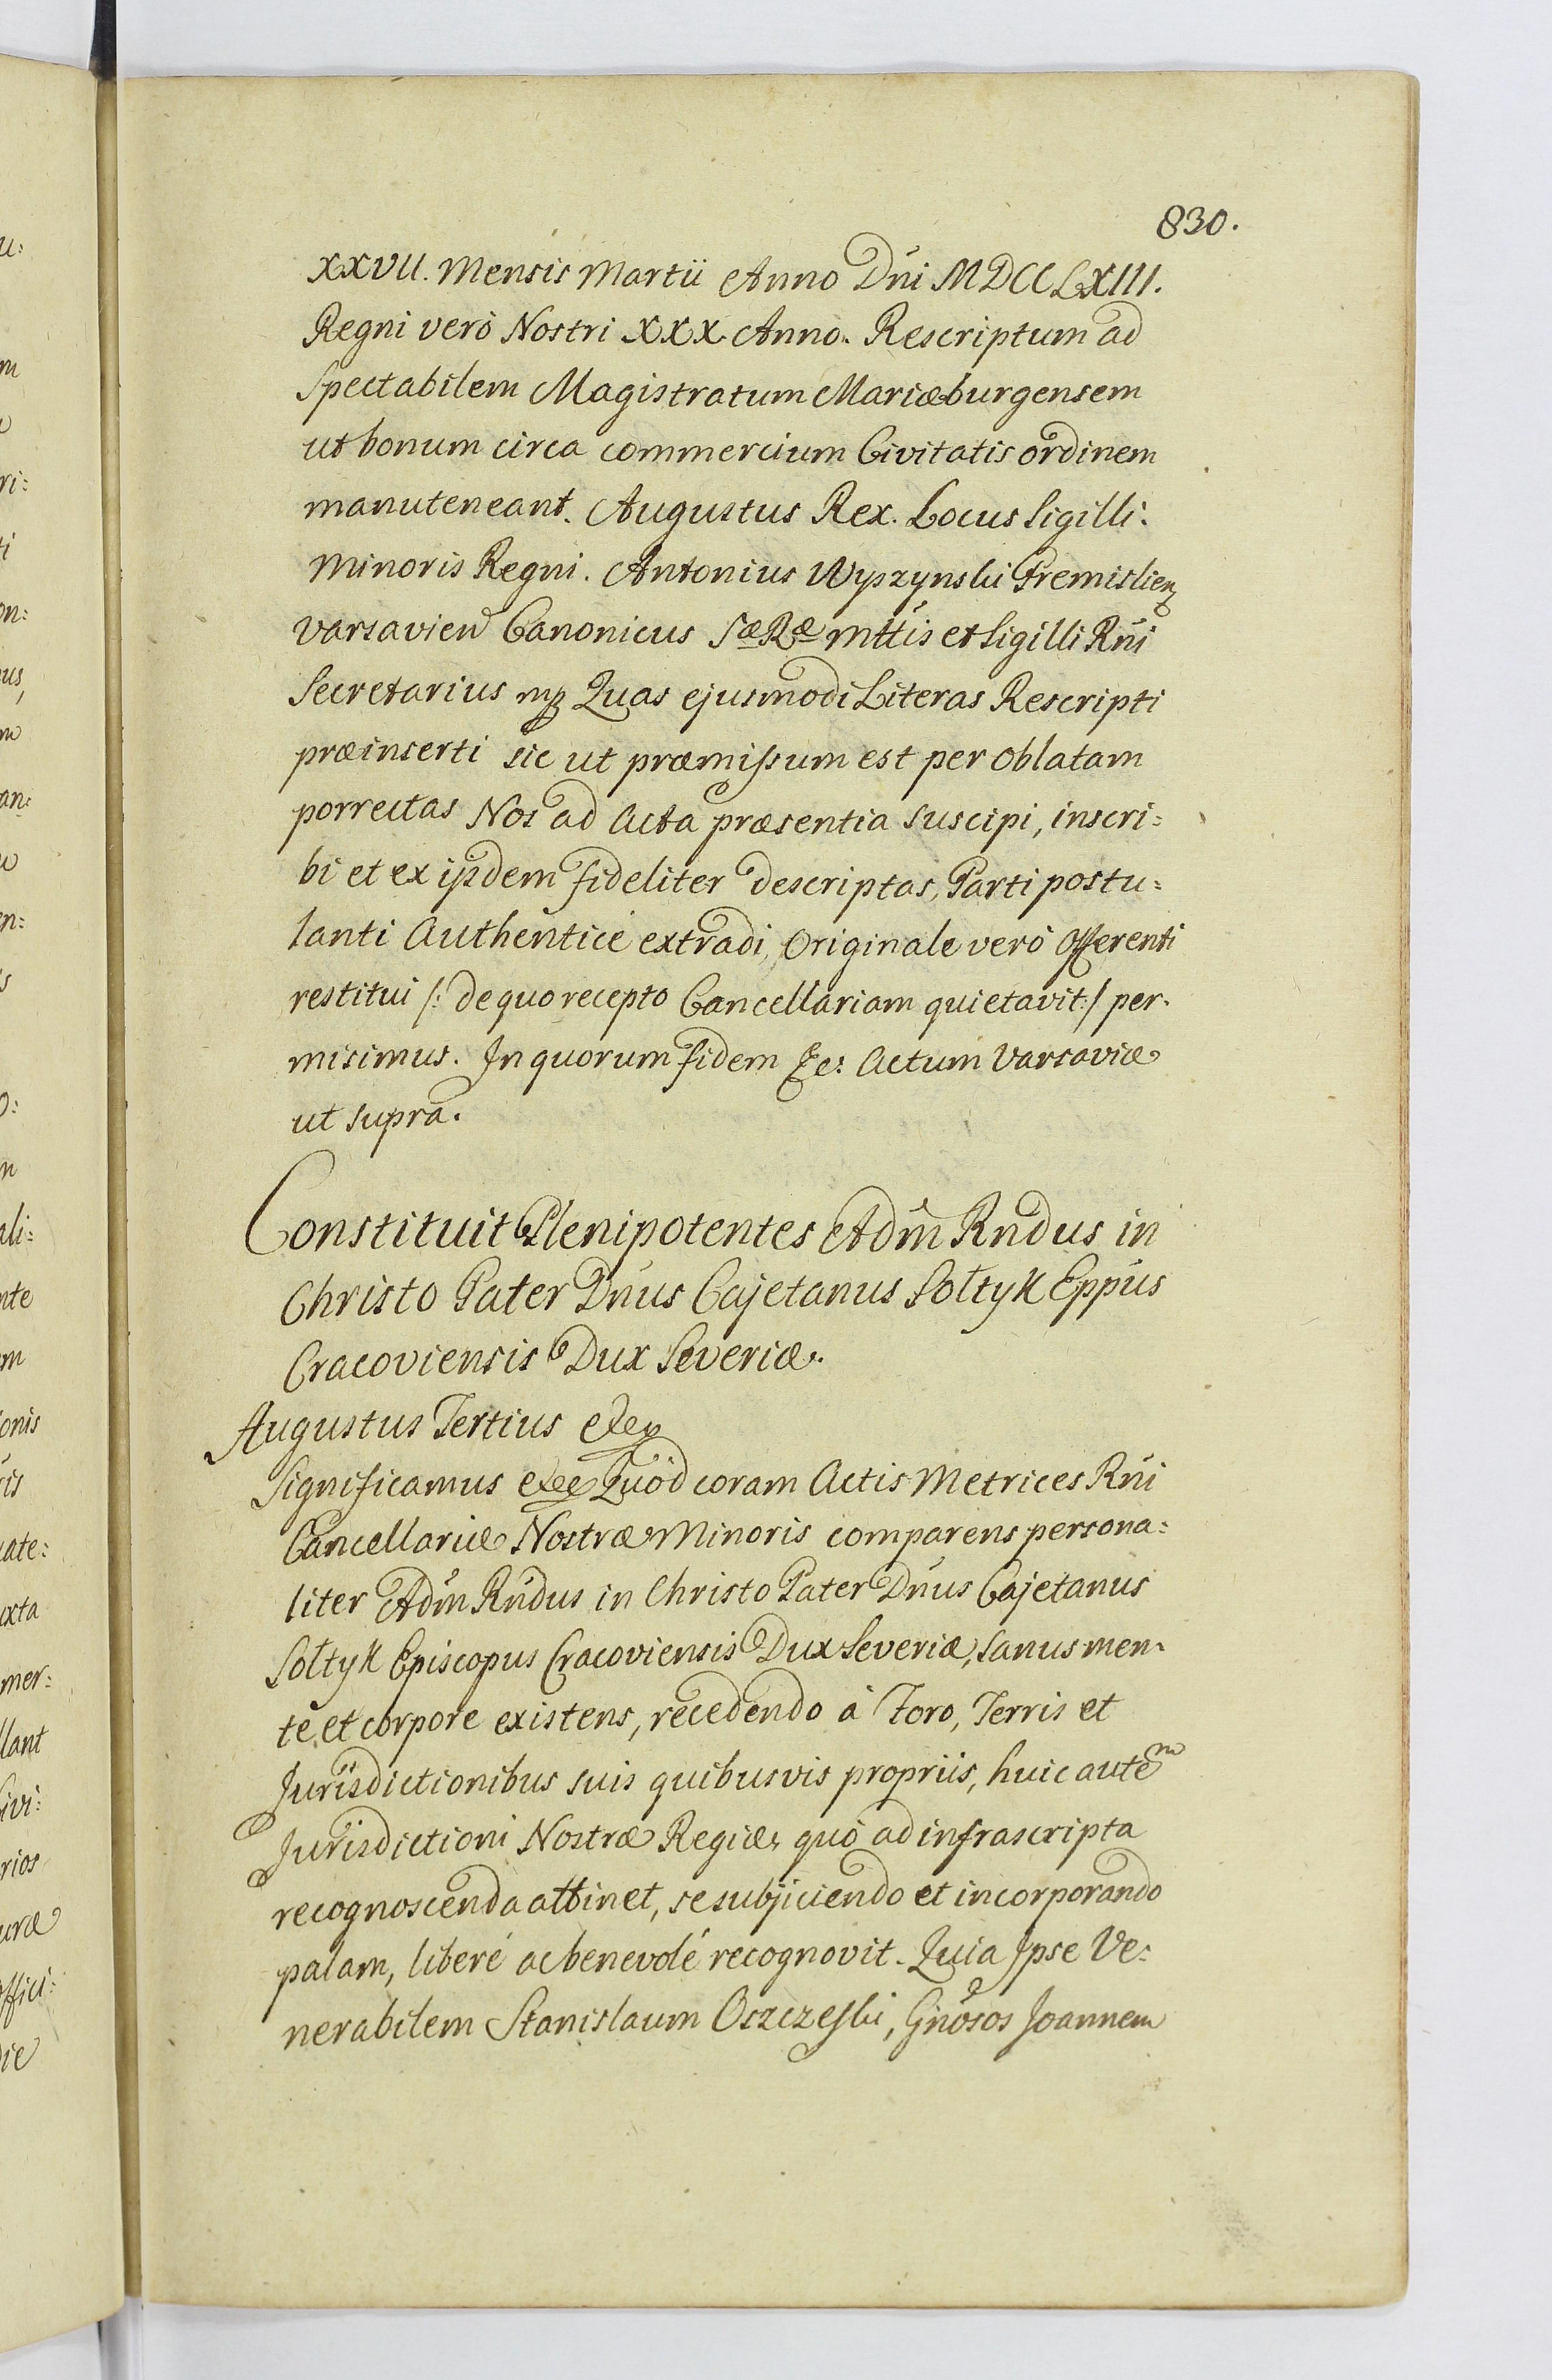 830.
XXVII. Mensis Martii Anno Dni MDCCLXIII.
Regni verò Nostri XXX. Anno. Rescriptum ad
Spectabilem Magistratum Mariæburgensem
ut bonum circa commercium Civitatis ordinem
manuteneant. Augustus Rex. Locus Sigilli.
Minoris Regni. Antonius Wyszynski Premislien
Varsavien Canonicus Sæ Ræ Mttis et Sigilli Rni
Secretarius mp Quas ejusmodi Literas Rescripti
præinserti sic ut præmissum est per Oblatam
porrectas Nos ad Acta præsentia suscipi, inscri:
bi et ex ijsdem fideliter descriptas, Parti postu:
lanti Authenticè extradi, Originale verò Offerenti
restitui /: de quo recepto Cancellariam quietavit:/ per.
misimus. In quorum fidem &c: Actum Varsaviæ
ut supra.
Constituit Plenipotentes Adm Rndus in
Christo Pater Dnus Cajetanus Sołtyk Eppus
Cracoviensis Dux Severiæ.
Augustus Tertius etc
Significamus etc Quod coram Actis Metrices Rni
Cancellariæ Nostræ Minoris comparens persona:
liter Adm Rndus in Christo Pater Dnus Cajetanus
Sołtyk Episcopus Cracoviensis Dux Severiæ, sanus men:
te et corpore existens, recedendo à Foro, Terris et
Jurisdictionibus suis quibusvis propriis, huic autem
Jurisdictioni Nostræ Regiæ, quo ad infrascripta
recognoscenda attinet, se subjiciendo et incorporando
palam, liberé ac benevolé recognovit. Quia Ipse Ve:
nerabilem Stanislaum Oszczeski, Gnosos Joannem